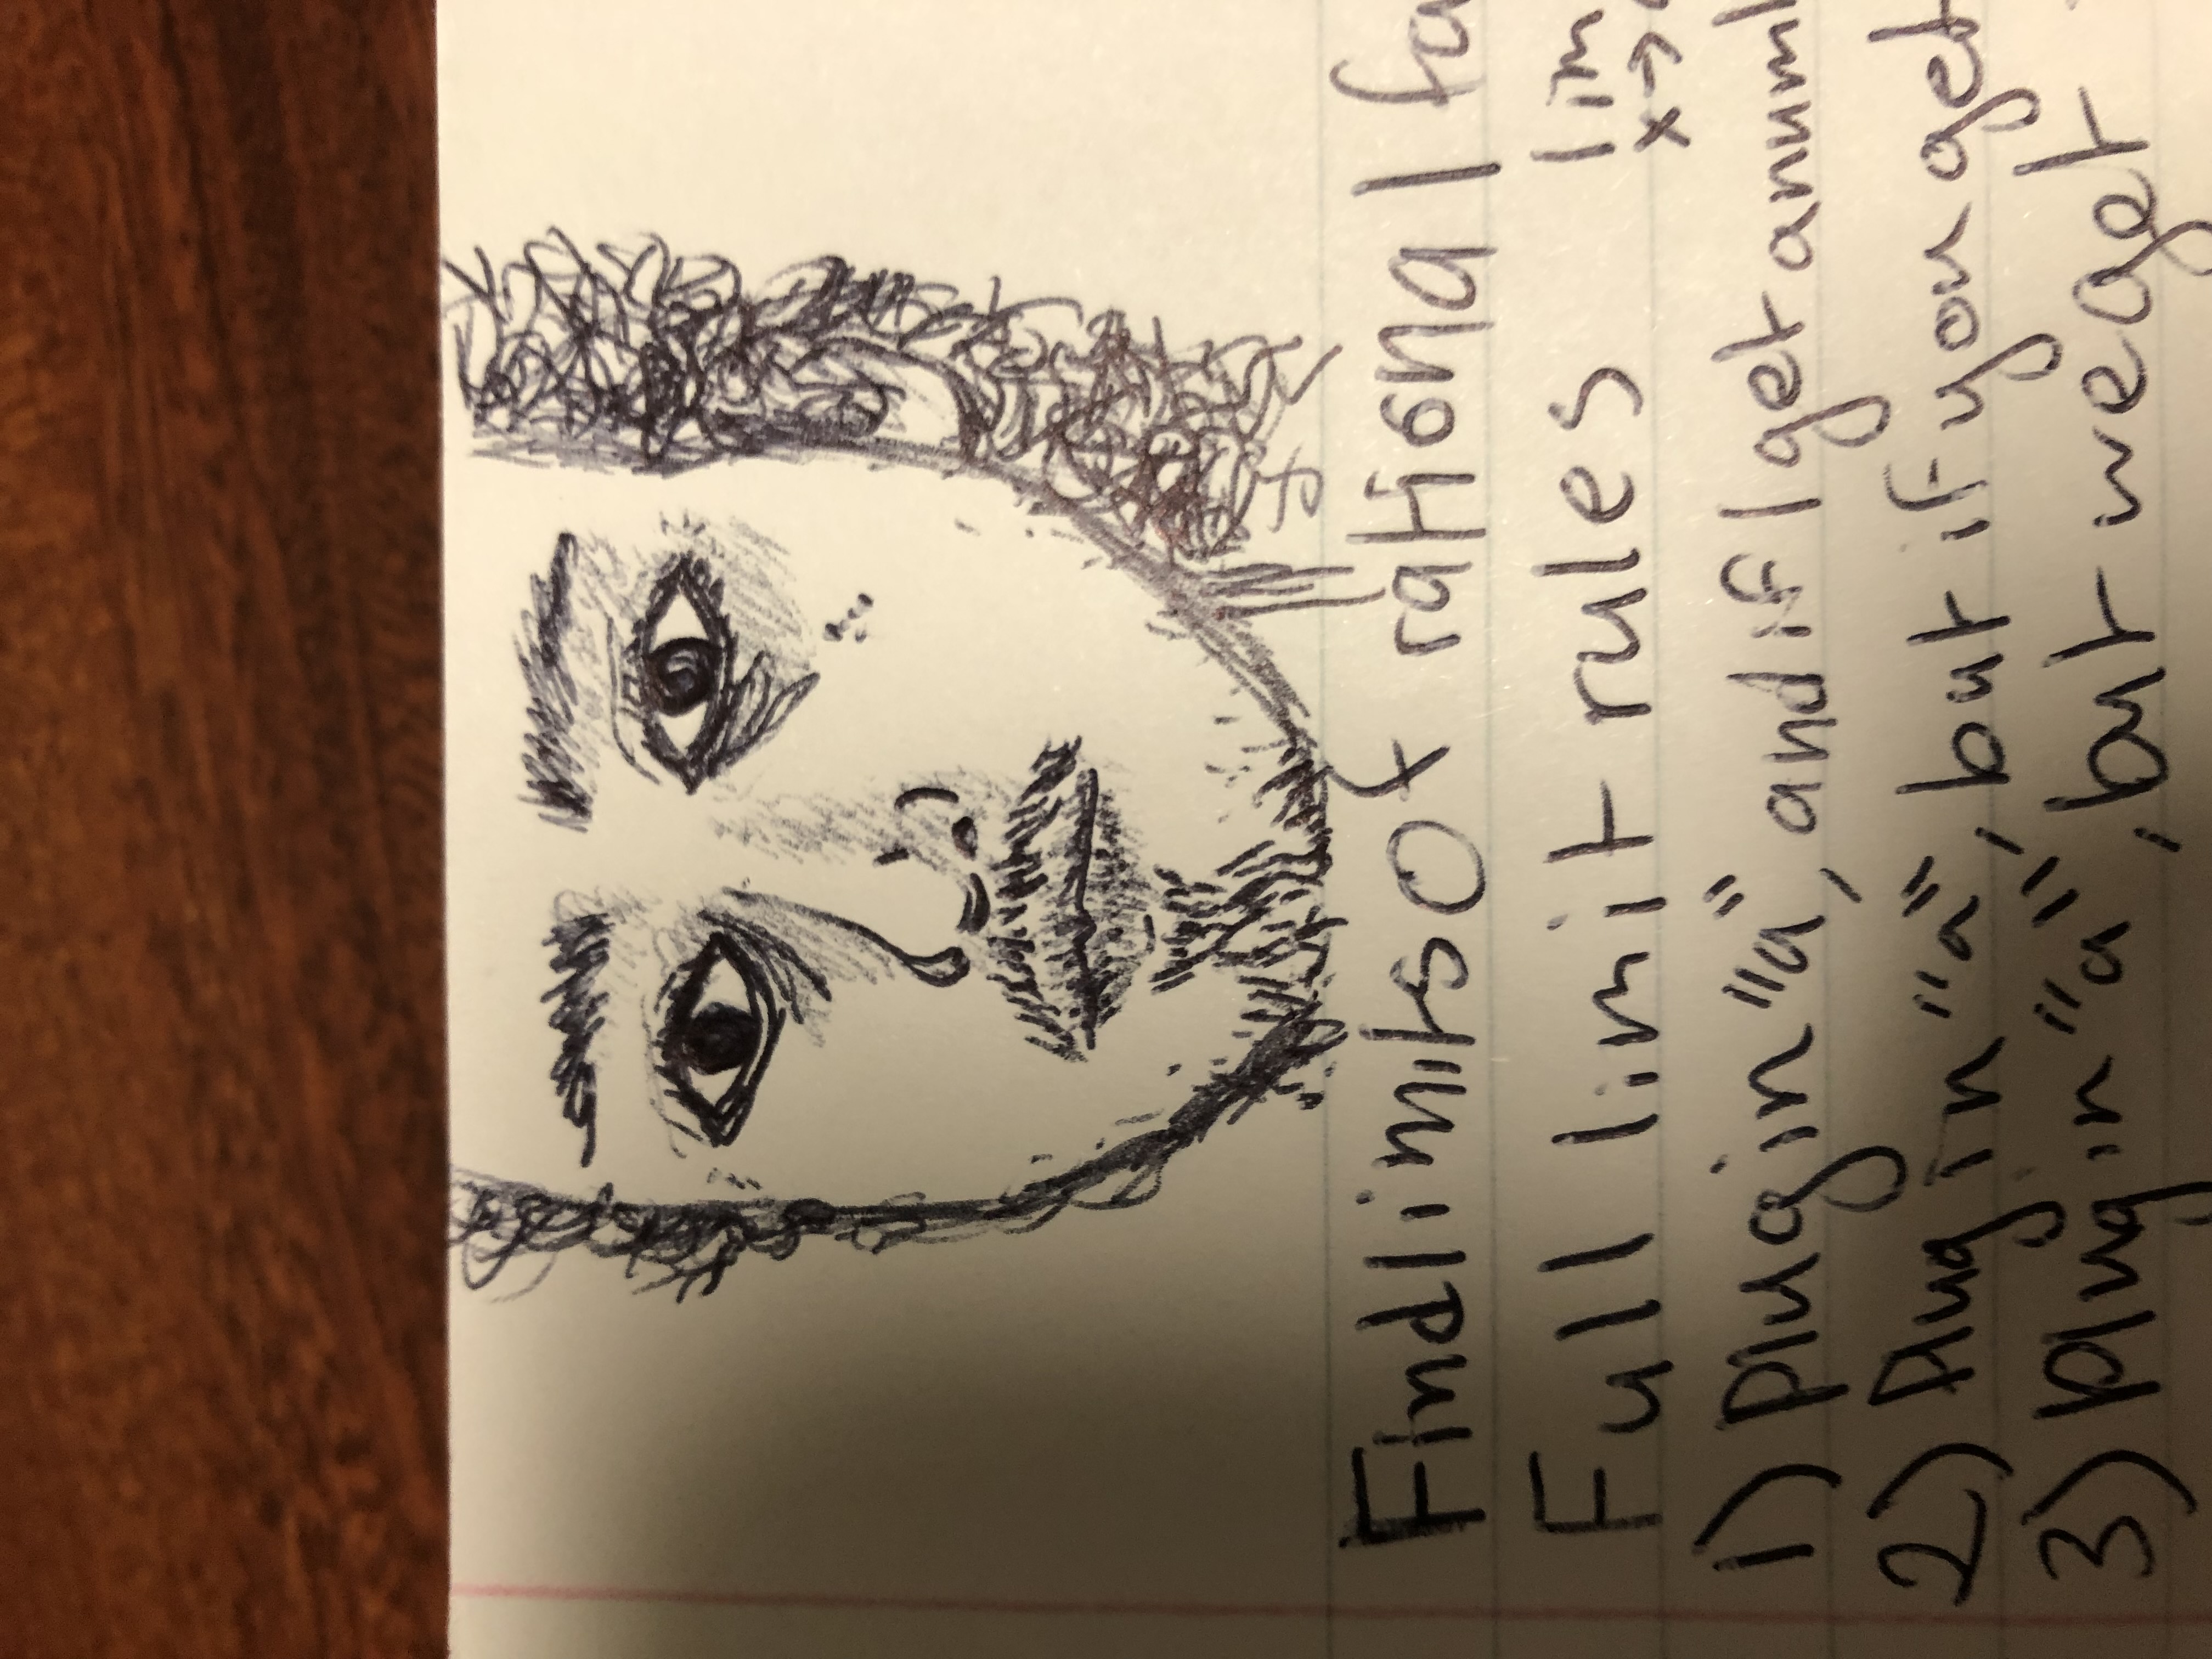 Find limits Of rational fa
Full limit rules lim
x→
1) plug in "a", and if I get a numb
2) Plug in "a", but if you get
3) plug in "a", but we get